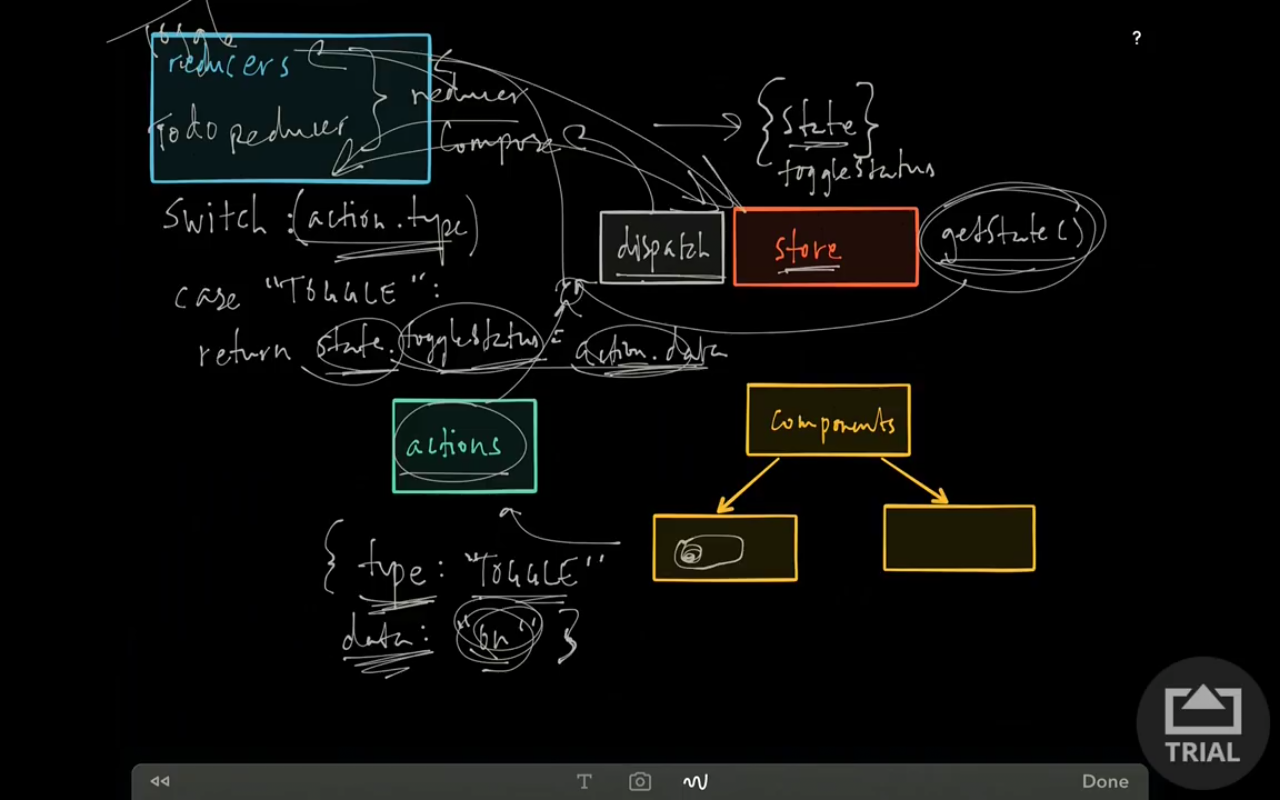 ?
reducers
Todo Reducer
reducer
Compose
{ State }
togglestatus
Switch : (action.type)
dispatch
store
getState()
case "TOGGLE" :
return state.togglestatus = action.data
actions
components
{ type: "TOGGLE"
data: "on" }
TRIAL
T
Done